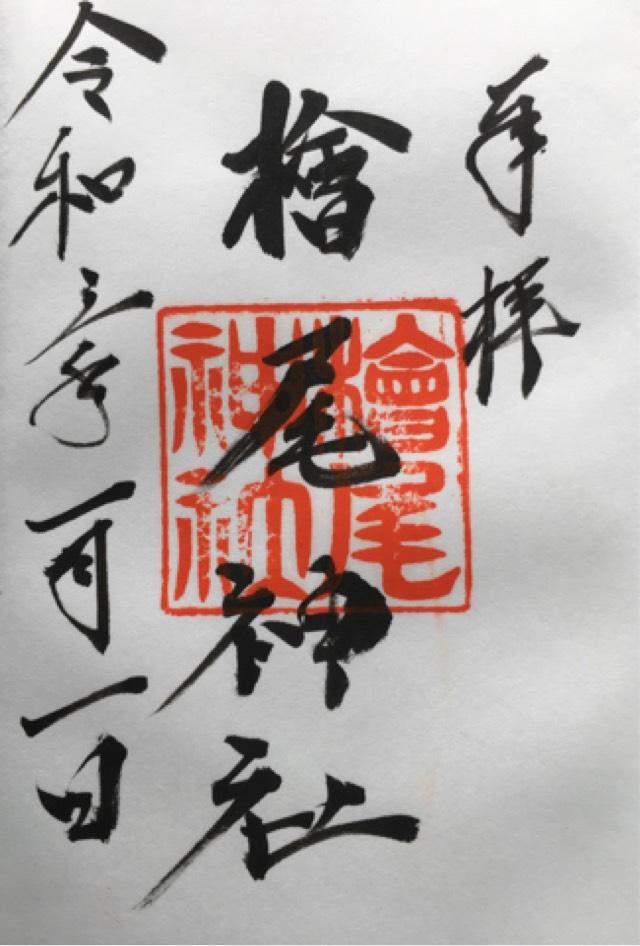 奉拝
檜尾神社
檜尾
神社
令和三年一月一日